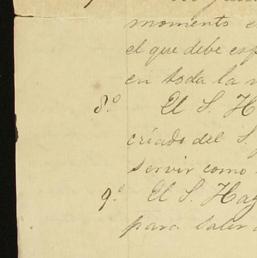 momento e
el que debe esp
en toda la n
8.º El S. H
criado del S.
servir como
9.º El S. Hag
para